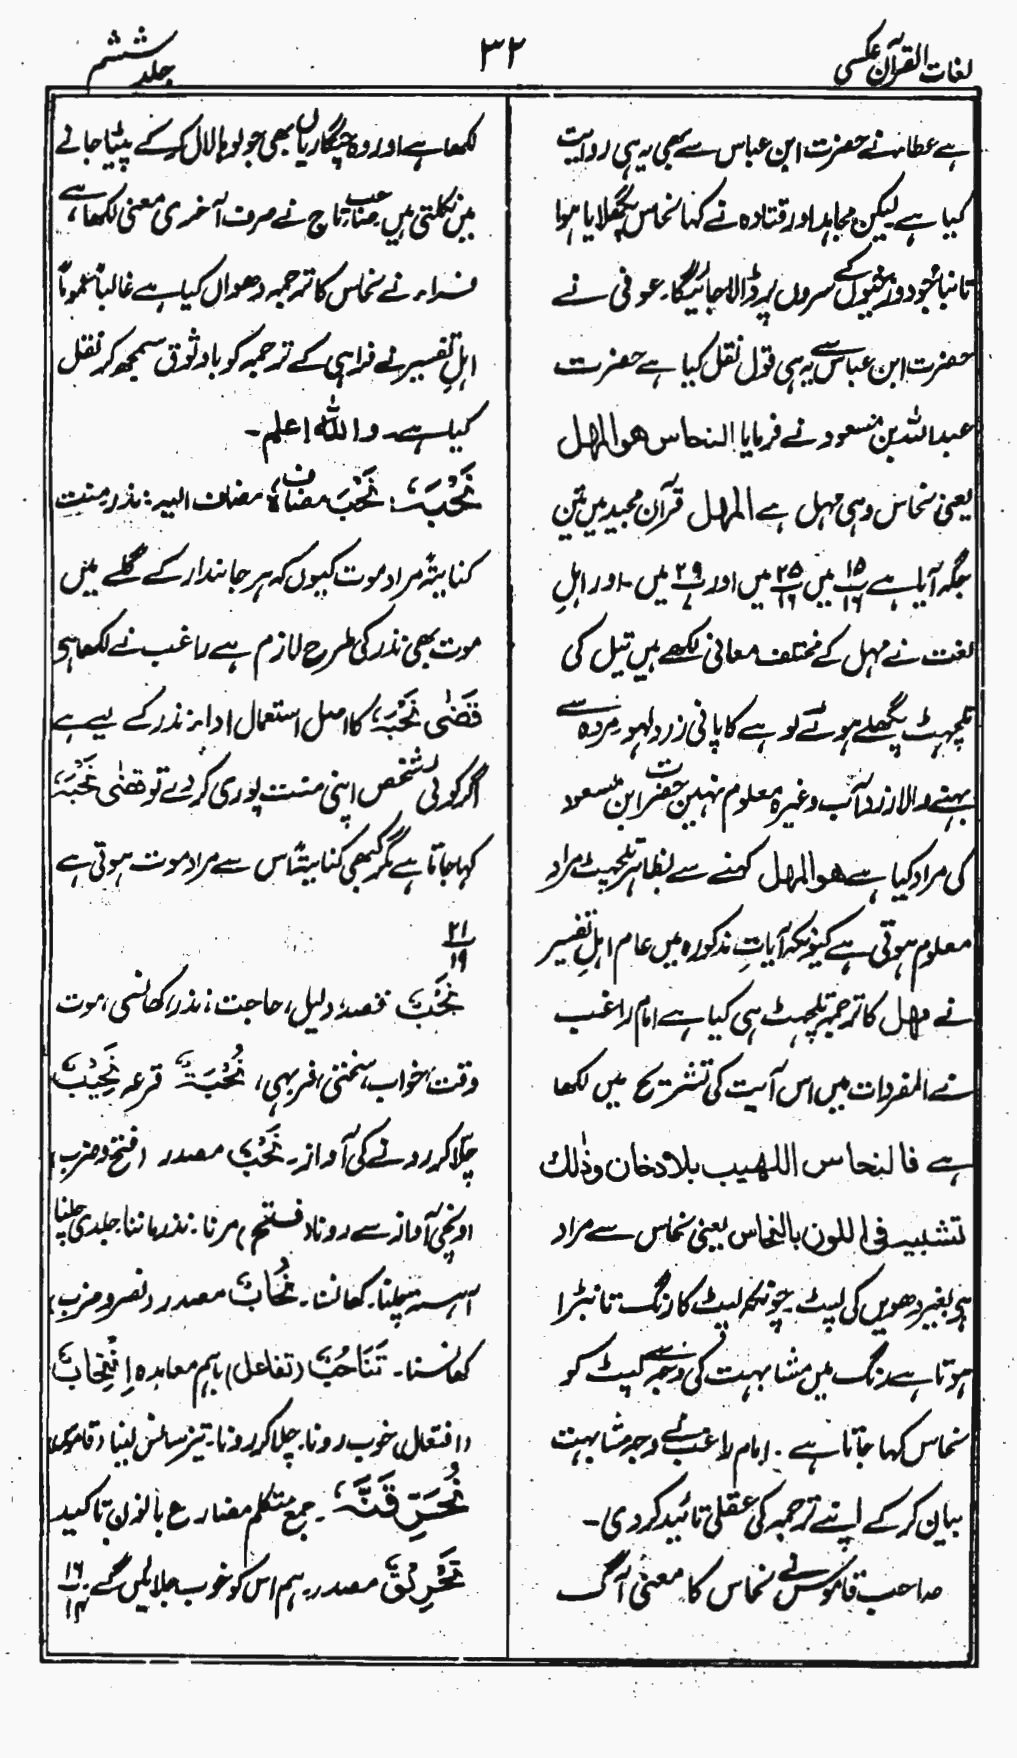 لغات القرآن عکسی
۳۲
جلد ششم
ہے عطاء نے حضرت ابن عباس سے بھی یہ ہی روایت
کیا ہے لیکن مجاہد اور قتادہ نے کہا نحاس پگھلایا ہوا
تانبا جو دوزخیوں کے سروں پر ڈالا جائیگا۔ عوفی نے
حضرت ابن عباس سے یہ ہی قول نقل کیا ہے حضرت
عبداللہ بن مسعود نے فرمایا النحاس ھو المھل
یعنی نحاس وہی مہل ہے المھل قرآن مجید میں تین
جگہ آیا ہے ۱۵/۱۶ میں ۲۵/۱۶ میں اور ۲۹/۷ میں ۔ اور اہلِ
لغت نے مہل کے مختلف معانی لکھے ہیں تیل کی
تلچھٹ پگھلے ہوئے لو ہے کا پانی زرد لہو مردہ سے
بہنے والا زرد آب وغیرہ معلوم نہیں حضرت ابن مسعود
کی مراد کیا ہے ھو المھل کہنے سے بظاہر تلچھٹ مراد
معلوم ہوتی ہے کیونکہ آیاتِ مذکورہ میں عام اہلِ تفسیر
نے مہل کا ترجمہ تلچھٹ ہی کیا ہے امام راغب
نے المفردات میں اس آیت کی تشریح میں لکھا
ہے فالنحاس اللھیب بلا دخان وذٰلک
تشبیہ فی اللون بالنحاس یعنی نحاس سے مراد
ہے بغیر دھویں کی لپٹ ۔ چونکہ لپٹ کا رنگ تانبڑا
ہوتا ہے رنگ میں مشابہت کی وجہ سے لپٹ کو
نحاس کہا جاتا ہے ۔ امام راغب نے وجہ مشابہت
بیان کر کے اپنے ترجمہ کی عقلی تائید کر دی ۔
صاحب قاموس نے نحاس کا معنی آگ
لکھا ہے اور وہ چنگاریاں بھی جو لوہا لال کر کے پیٹا جانے
میں نکلتی ہیں صاحب تاج نے صرف آخری معنی لکھا ہے،
فراء نے نحاس کا ترجمہ دھواں کیا ہے غالباً عموماً
اہلِ تفسیر نے فراہی کے ترجمہ کو باوثوق سمجھ کر نقل
کیا ہے۔ واللہ اعلم ۔
نَحْبَہٗ: نَحْبَ مضاف ہٗ مضاف الیہ: نذر منت
کنایۃً مراد موت کیوں کہ ہر جاندار کے گلے میں
موت بھی نذر کی طرح لازم ہے راغب نے لکھا ہے
قَضٰی نَحْبَہٗ کا اصل استعمال اداءِ نذر کے لیے ہے
اگر کوئی شخص اپنی منت پوری کر دے تو قضٰی نَحْبَہٗ
کہا جاتا ہے مگر کبھی کنایۃً اس سے مراد موت ہوتی ہے
۲۱/۱۹
نَحْبٌ قصد، دلیل، حاجت، نذر، کھانسی، موت
وقت، خواب، سختی، فربہی، نُحْبَۃٌ قرعہ نَحِیْبٌ
چلا کر رونے کی آواز ۔ نَحْبٌ مصدر (فتح و ضرب)
اونچی آواز سے رونا (فتح) مرنا ۔ نذر ماننا جلدی چلنا
آہستہ چلنا ۔ کھانسنا ۔ نُحَابٌ مصدر (نصر و ضرب)
کھانسنا ۔ تَنَاحُبٌ (تفاعل) باہم معاہدہ اِنْتِحَابٌ
(افتعال) خوب رونا ۔ چلا کر رونا ۔ تیز سانس لینا (قاموس)
نُحَرِّقَنَّہٗ ۔ جمع متکلم مضارع بالون تاکید
تَحْرِیْقٌ مصدر ۔ ہم اس کو خوب جلا لیں گے ۔ ۱۶/۱۴